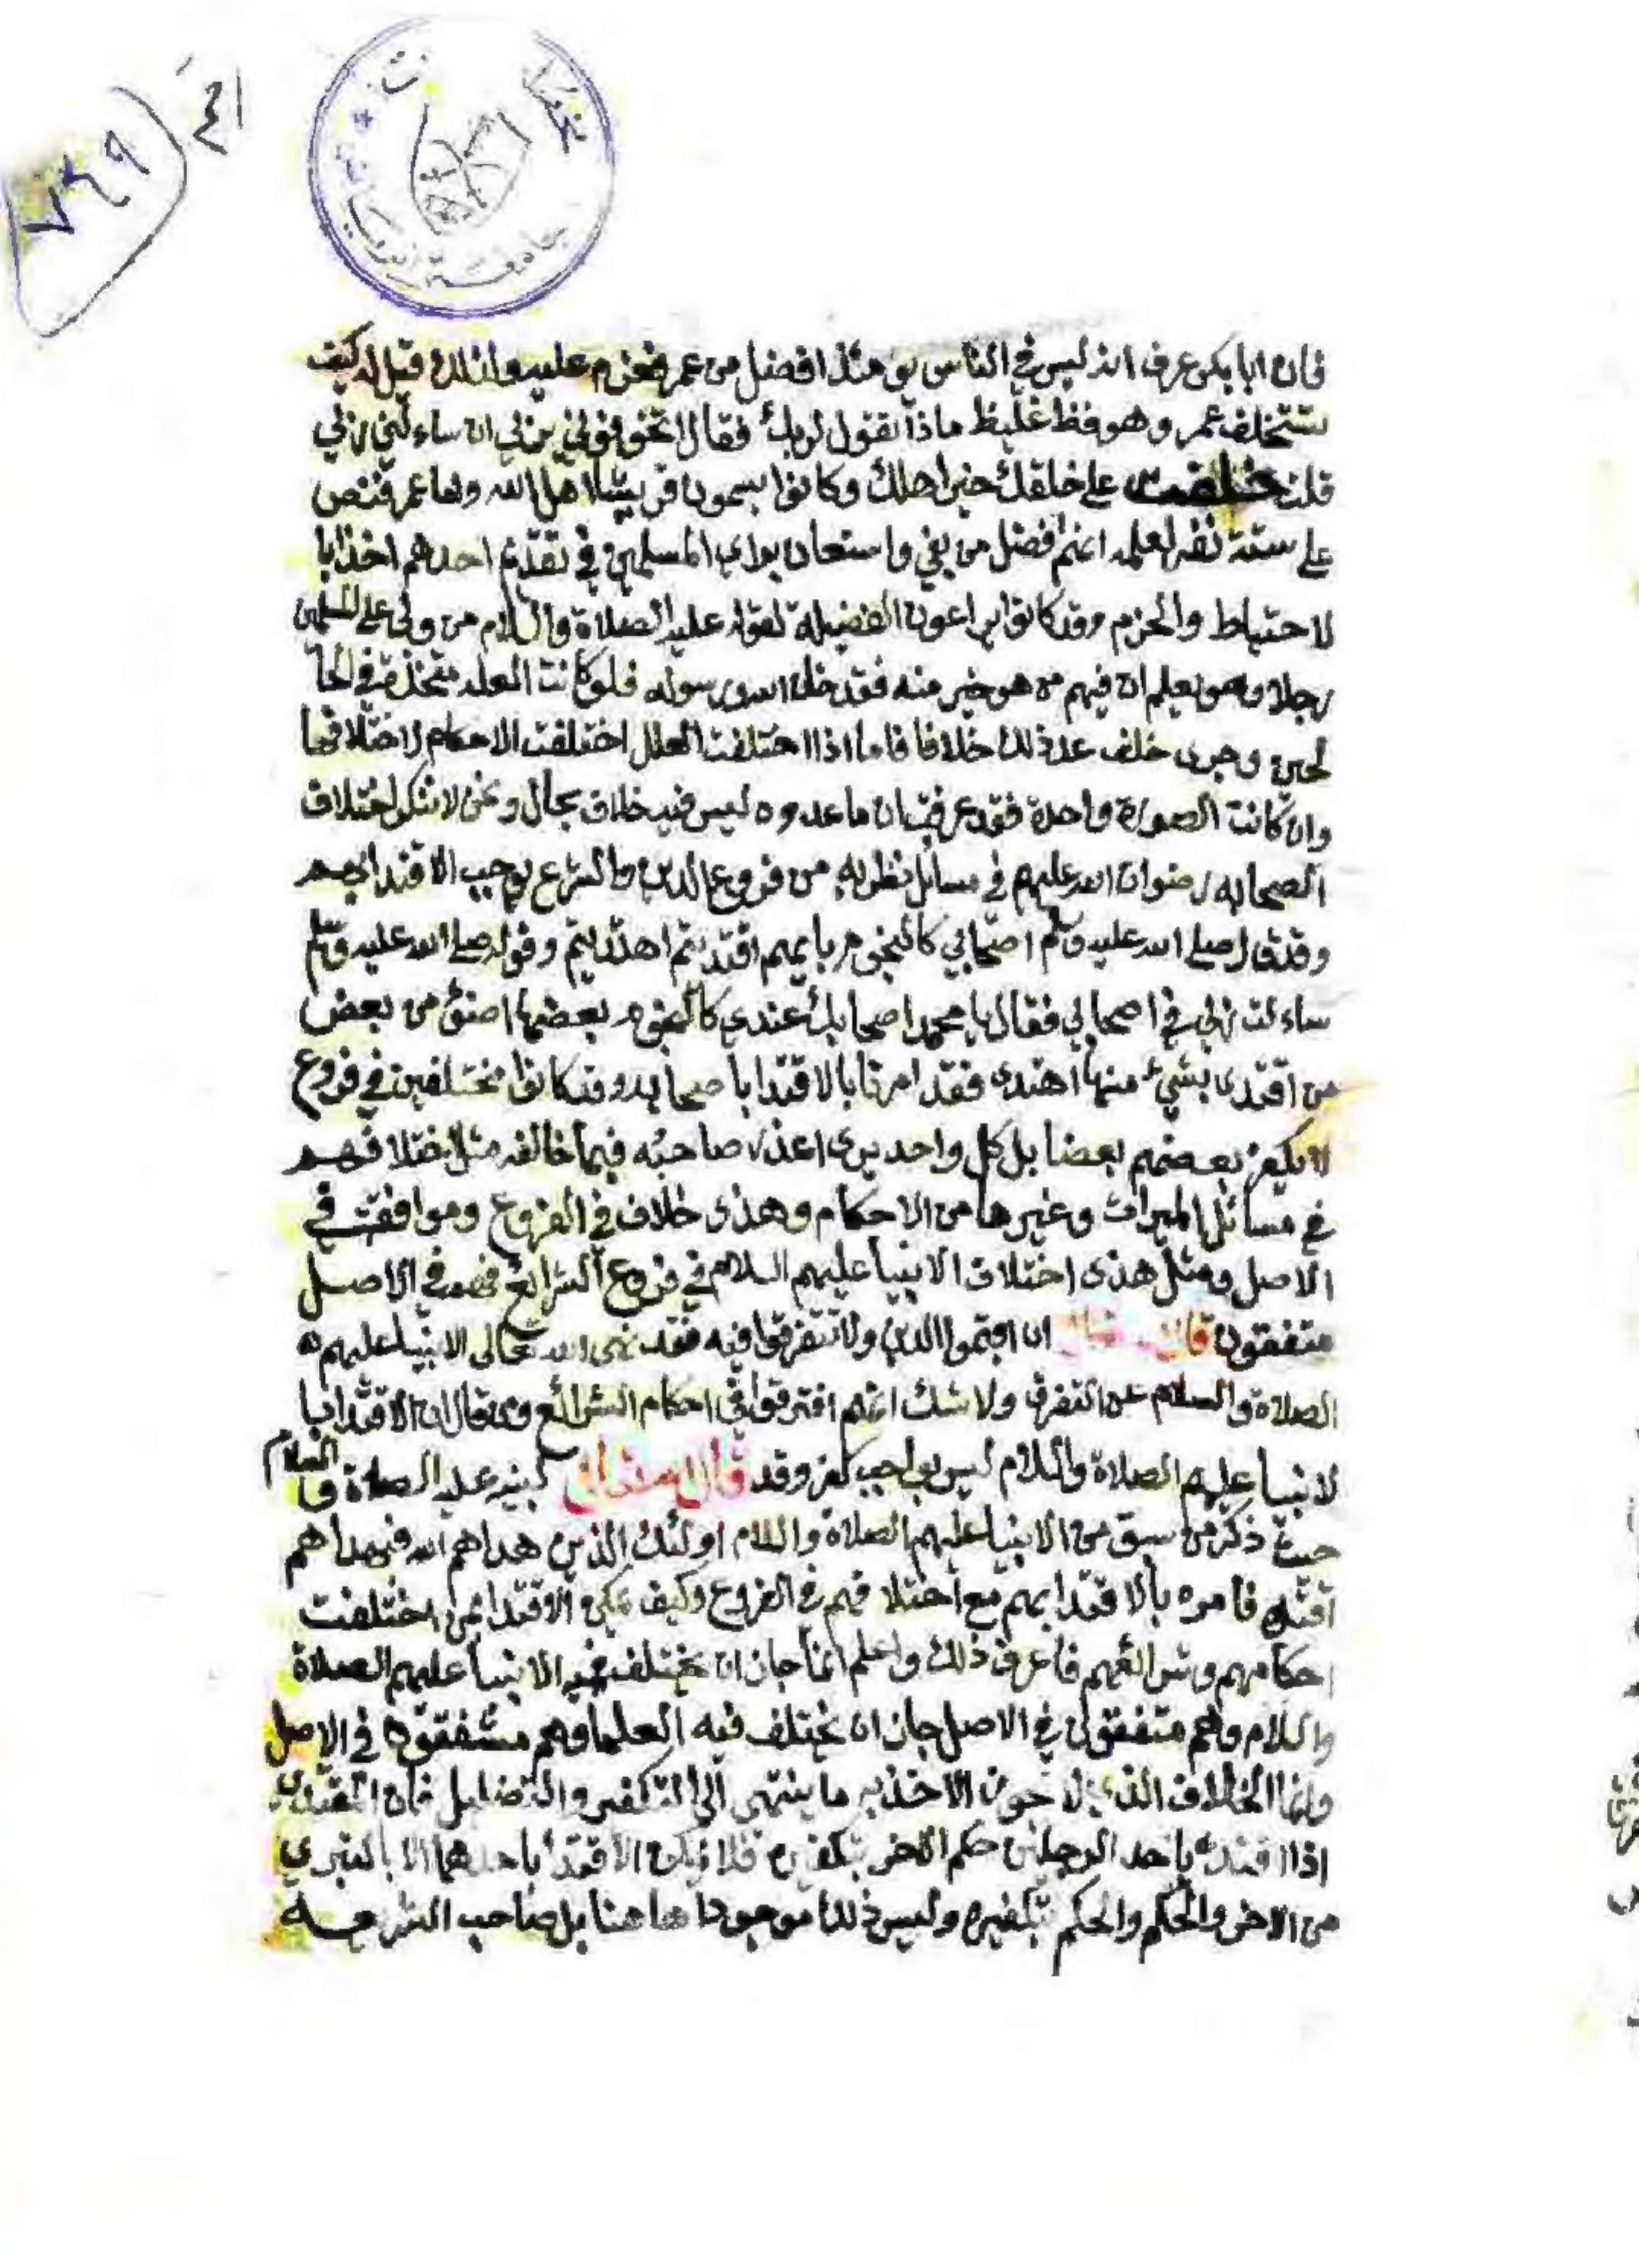 ٧٤٩
فان ابا بكر عرف انه ليس في الناس يومئذ افضل من عمر فعزم عليه قيل له كيف
تستخلف عمر وهو فظ غليظ ماذا تقول لربك فقال اتخوفوني بربي ان ساءلني ربي
قلت على خلقك خير اهلك وكانوا يسمون قريشا اهل الله وبها عمر فنص
على ستة نفر لعلمه انهم افضل من بقي واستعان براي المسلمين في تقديم احدهم اخذا با
لاحتياط والحزم وقد كانوا يراعون الفضيلة لقوله عليه الصلاة والسلام من ولى على المسلمين
رجلا وهو يعلم ان فيهم من هو خير منه فقد خان الله ورسوله فلو كانت العلة متحدة في الحا
لحين وجرى خلف عد ذلك خلافا فاما اذا اختلفت العلل اختلفت الاحكام لاختلافها
وان كانت الصورة واحدة فقد عرفت ان ما عدوه ليس فيه خلاف بحال ونحن لا ننكر اختلاف
الصحابه رضوان الله عليهم في مسائل نظريه من فروع الدين والشرع يوجب الاقتدا بهم
وقد قال صلى الله عليه وسلم اصحابي كالنجوم بايهم اقتديتم اهتديتم وقوله صلى الله عليه وسلم
ساءلت ربي في اصحابي فقال يا محمد اصحابك عندي كالنجوم بعضها اضوئ من بعض
من اقتدى بشيء منها اهتدى فقد امرنا بالاقتدا با صحابه وقد كانوا مختلفين في فروع
لا يكفر بعضهم بعضا بل كل واحد يرى اعذار صاحبه فيما خالفه مثل اختلافهم
في مسائل الميراث وغيرها من الاحكام وهذى خلاف في الفروع وموافقة في
الاصل ومثل هذى اختلاف الانبيا عليهم السلام في فروع الشرائع فهم في الاصل
متفقون ان اقيموا الدين ولا تتفرقوا فيه فقد نهى الله تعالى الانبيا عليهم
الصلاة والسلام عن التفرق ولا شك انهم افترقوا في احكام الشرائع ومن قال ان الاقتدا با
لانبيا عليهم الصلاة والسلام ليس بواجب كفر وقد قال الله تعالى لنبيه عليه الصلاة والسلام
حيث ذكر من سبق من الانبيا عليهم الصلاة والسلام اولئك الذين هداهم الله فبهداهم
اقتده فامره بالاقتدا بهم مع اختلافهم في الفروع وكيف يمكن الاقتدا بمن اختلفت
احكامهم وشرائعهم فاعرف ذلك واعلم انما جاز ان يختلف فيه الانبيا عليهم الصلاة
والسلام وهم متفقون في الاصل جاز ان يختلف فيه العلما وهم متفقون في الاصل
وانما الخلاف الذي لا يجوز الاخذ به ما ينتهي الى التكفير والتضليل فان المقتدي
اذا اقتدى باحد الرجلين حكم الاخر بتكفيره فلا يمكن الاقتدا باحدهما الا بالتبري
من الاخر والحكم والحكم بتكفيره وليس ذلك موجودا هاهنا بل صاحب الشرعه